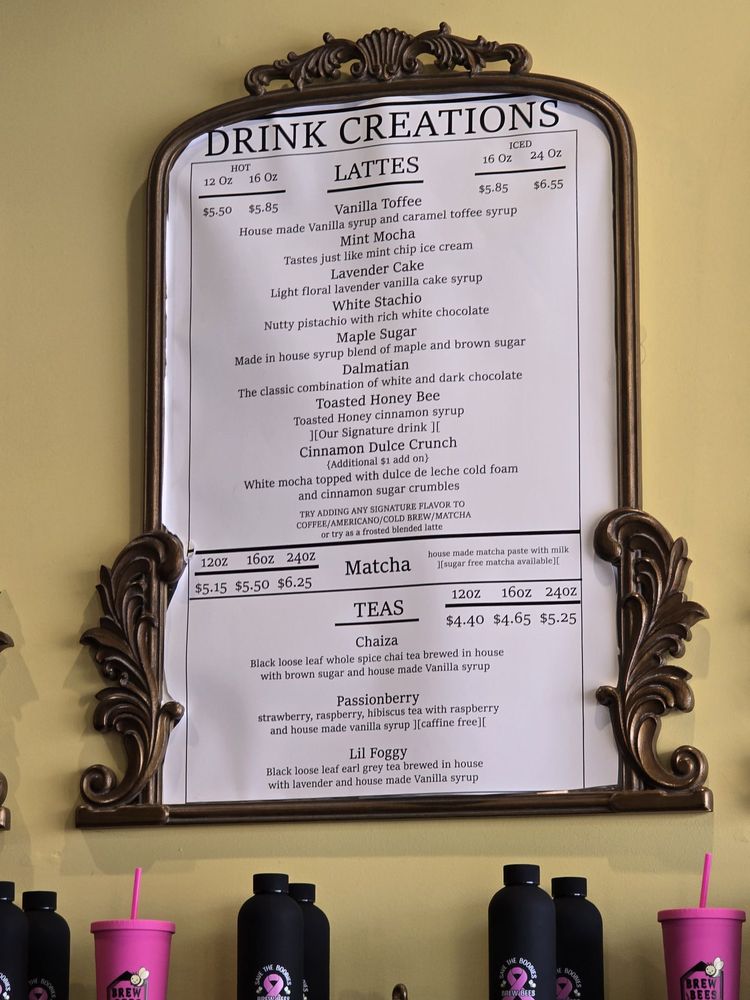 DRINK CREATIONS
HOT
12 Oz 16 Oz
LATTES
ICED
16 Oz 24 Oz
$5.50 $5.85
$5.85 $6.55
Vanilla Toffee
House made Vanilla syrup and caramel toffee syrup
Mint Mocha
Tastes just like mint chip ice cream
Lavender Cake
Light floral lavender vanilla cake syrup
White Stachio
Nutty pistachio with rich white chocolate
Maple Sugar
Made in house syrup blend of maple and brown sugar
Dalmatian
The classic combination of white and dark chocolate
Toasted Honey Bee
Toasted Honey cinnamon syrup
][Our Signature drink ][
Cinnamon Dulce Crunch
{Additional $1 add on}
White mocha topped with dulce de leche cold foam
and cinnamon sugar crumbles
TRY ADDING ANY SIGNATURE FLAVOR TO
COFFEE/AMERICANO/COLD BREW/MATCHA
or try as a frosted blended latte
12oz 16oz 24oz
$5.15 $5.50 $6.25
Matcha
house made matcha paste with milk
][sugar free matcha available][
TEAS
12oz 16oz 24oz
$4.40 $4.65 $5.25
Chaiza
Black loose leaf whole spice chai tea brewed in house
with brown sugar and house made Vanilla syrup
Passionberry
strawberry, raspberry, hibiscus tea with raspberry
and house made vanilla syrup ][caffine free][
Lil Foggy
Black loose leaf earl grey tea brewed in house
with lavender and house made Vanilla syrup
BREW
SAVE THE BOOBIES
BREW BEES
SAVE THE BOOBIES
BREW BEES
BREW
BEES